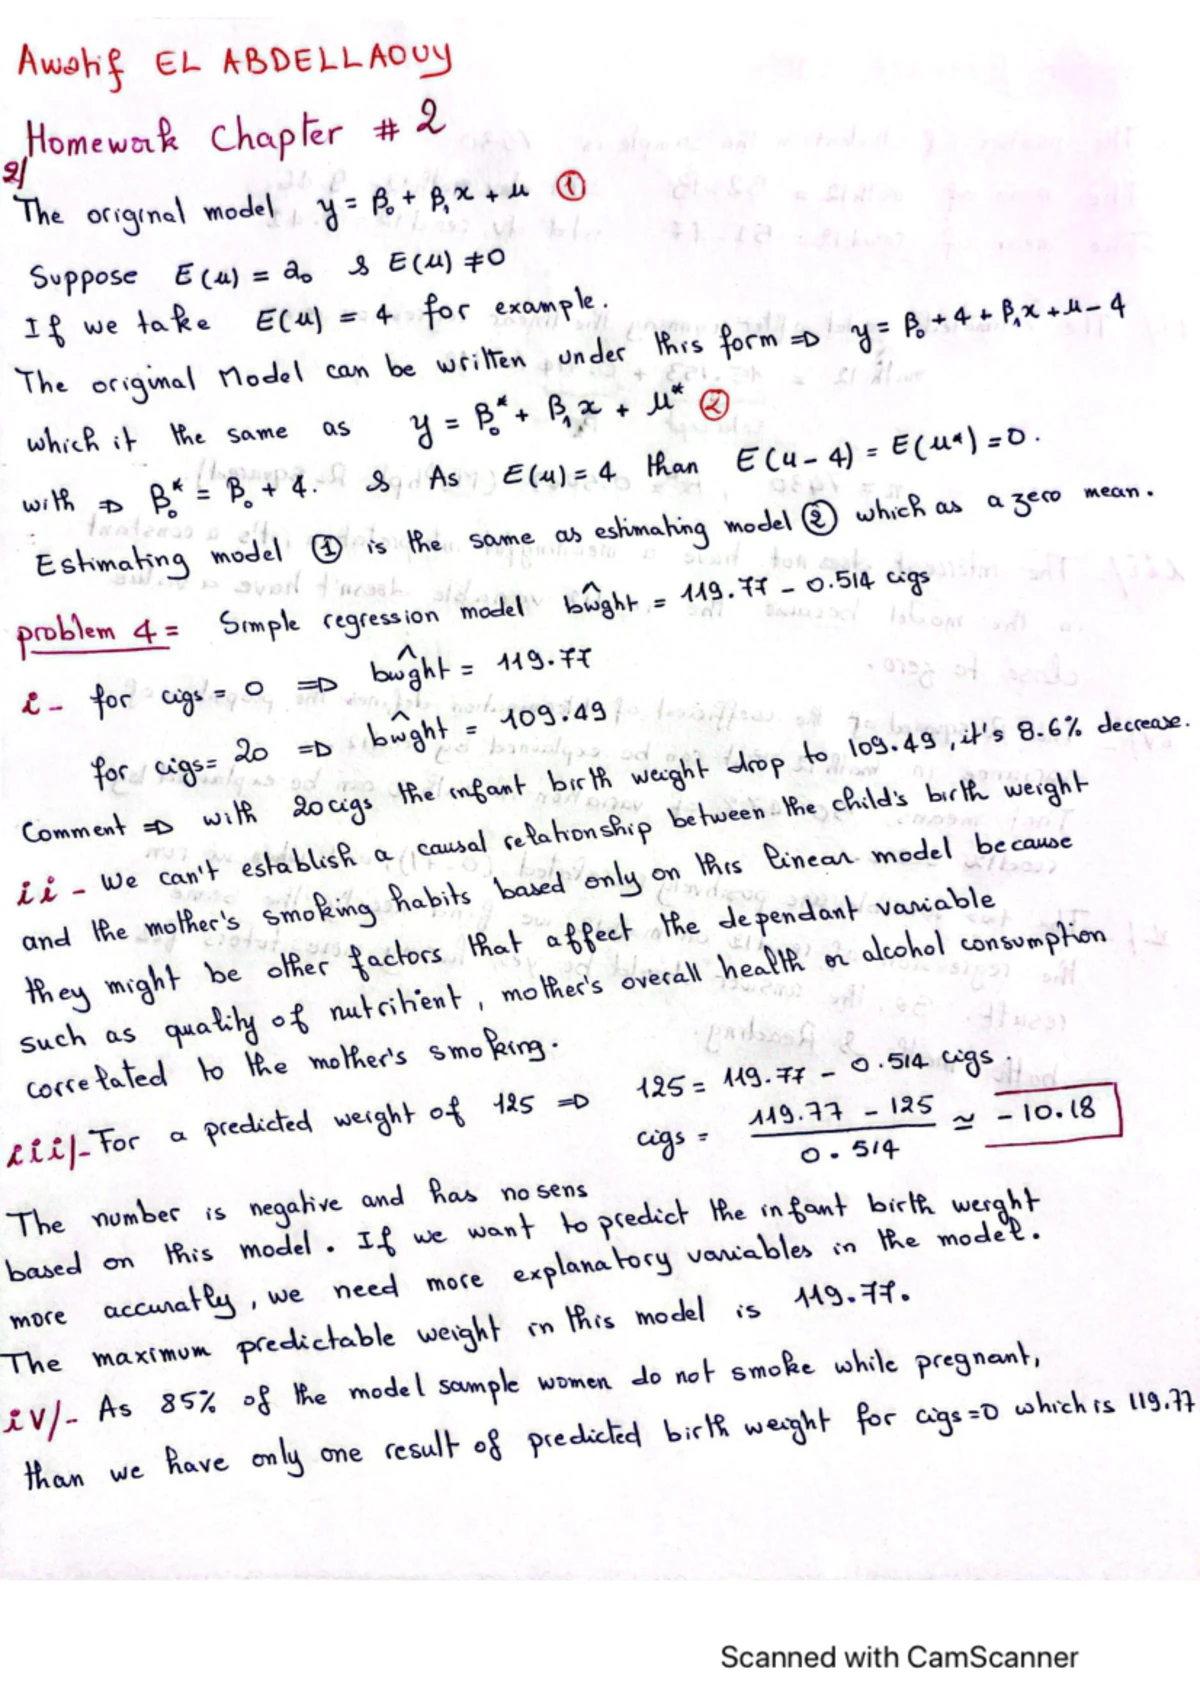 Awatif EL ABDELLAOUY
Homework Chapter # 2
2/
The original model y = β₀ + β₁x + μ ①
Suppose E(μ) = a₀ & E(μ) ≠ 0
If we take E(μ) = 4 for example.
The original Model can be written under this form ⇒ y = β₀ + 4 + β₁x + μ - 4
which it the same as y = β₀* + β₁x + μ* ②
with ⇒ β₀* = β₀ + 4. & As E(μ) = 4 than E(μ - 4) = E(μ*) = 0.
Estimating model ① is the same as estimating model ② which as a zero mean.
problem 4 = Simple regression model bwght^ = 119.77 - 0.514 cigs
i - for cigs = 0 ⇒ bwght^ = 119.77
for cigs = 20 ⇒ bwght^ = 109.49
Comment ⇒ with 20 cigs the infant birth weight drop to 109.49, it's 8.6% decrease.
ii - We can't establish a causal relationship between the child's birth weight
and the mother's smoking habits based only on this linear model because
they might be other factors that affect the dependant variable
such as quality of nutritient, mother's overall health or alcohol consumption
correlated to the mother's smoking.
iii/- For a predicted weight of 125 ⇒ 125 = 119.77 - 0.514 cigs.
cigs = (119.77 - 125) / 0.514 ≃ -10.18
The number is negative and has no sens
based on this model. If we want to predict the infant birth weight
more accuratly, we need more explanatory variables in the model.
The maximum predictable weight in this model is 119.77.
iv/- As 85% of the model sample women do not smoke while pregnant,
than we have only one result of predicted birth weight for cigs=0 which is 119.77
Scanned with CamScanner